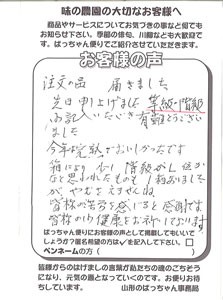 味の農園の大切なお客様へ
商品やサービスについてお気づきの事など何でも
お知らせ下さい。季節の俳句、川柳なども大歓迎で
す。ばっちゃん便りでご紹介させていただきます。
お客様の声
注文の品 届きました
先日申し上げました 等級・階級
明記 いただき有難とうござい
ました
今年が完熟でおいしかったです
箱により 階級がL
なと思われたもの あり
が やむをえませんね
皆様の苦労を感じると感謝です
皆様の 健康をお祈りしております
ばっちゃん便りにお客様の声として掲載してもいいで
しょうか?匿名希望の方は✓を記入して下さい。
ペンネームの方( )
皆様方からのはげましの言葉が私たちの魂のごちそう
になり、元気の源となっていくのです。お便りお待
ちしています。 山形のばっちゃん事務局